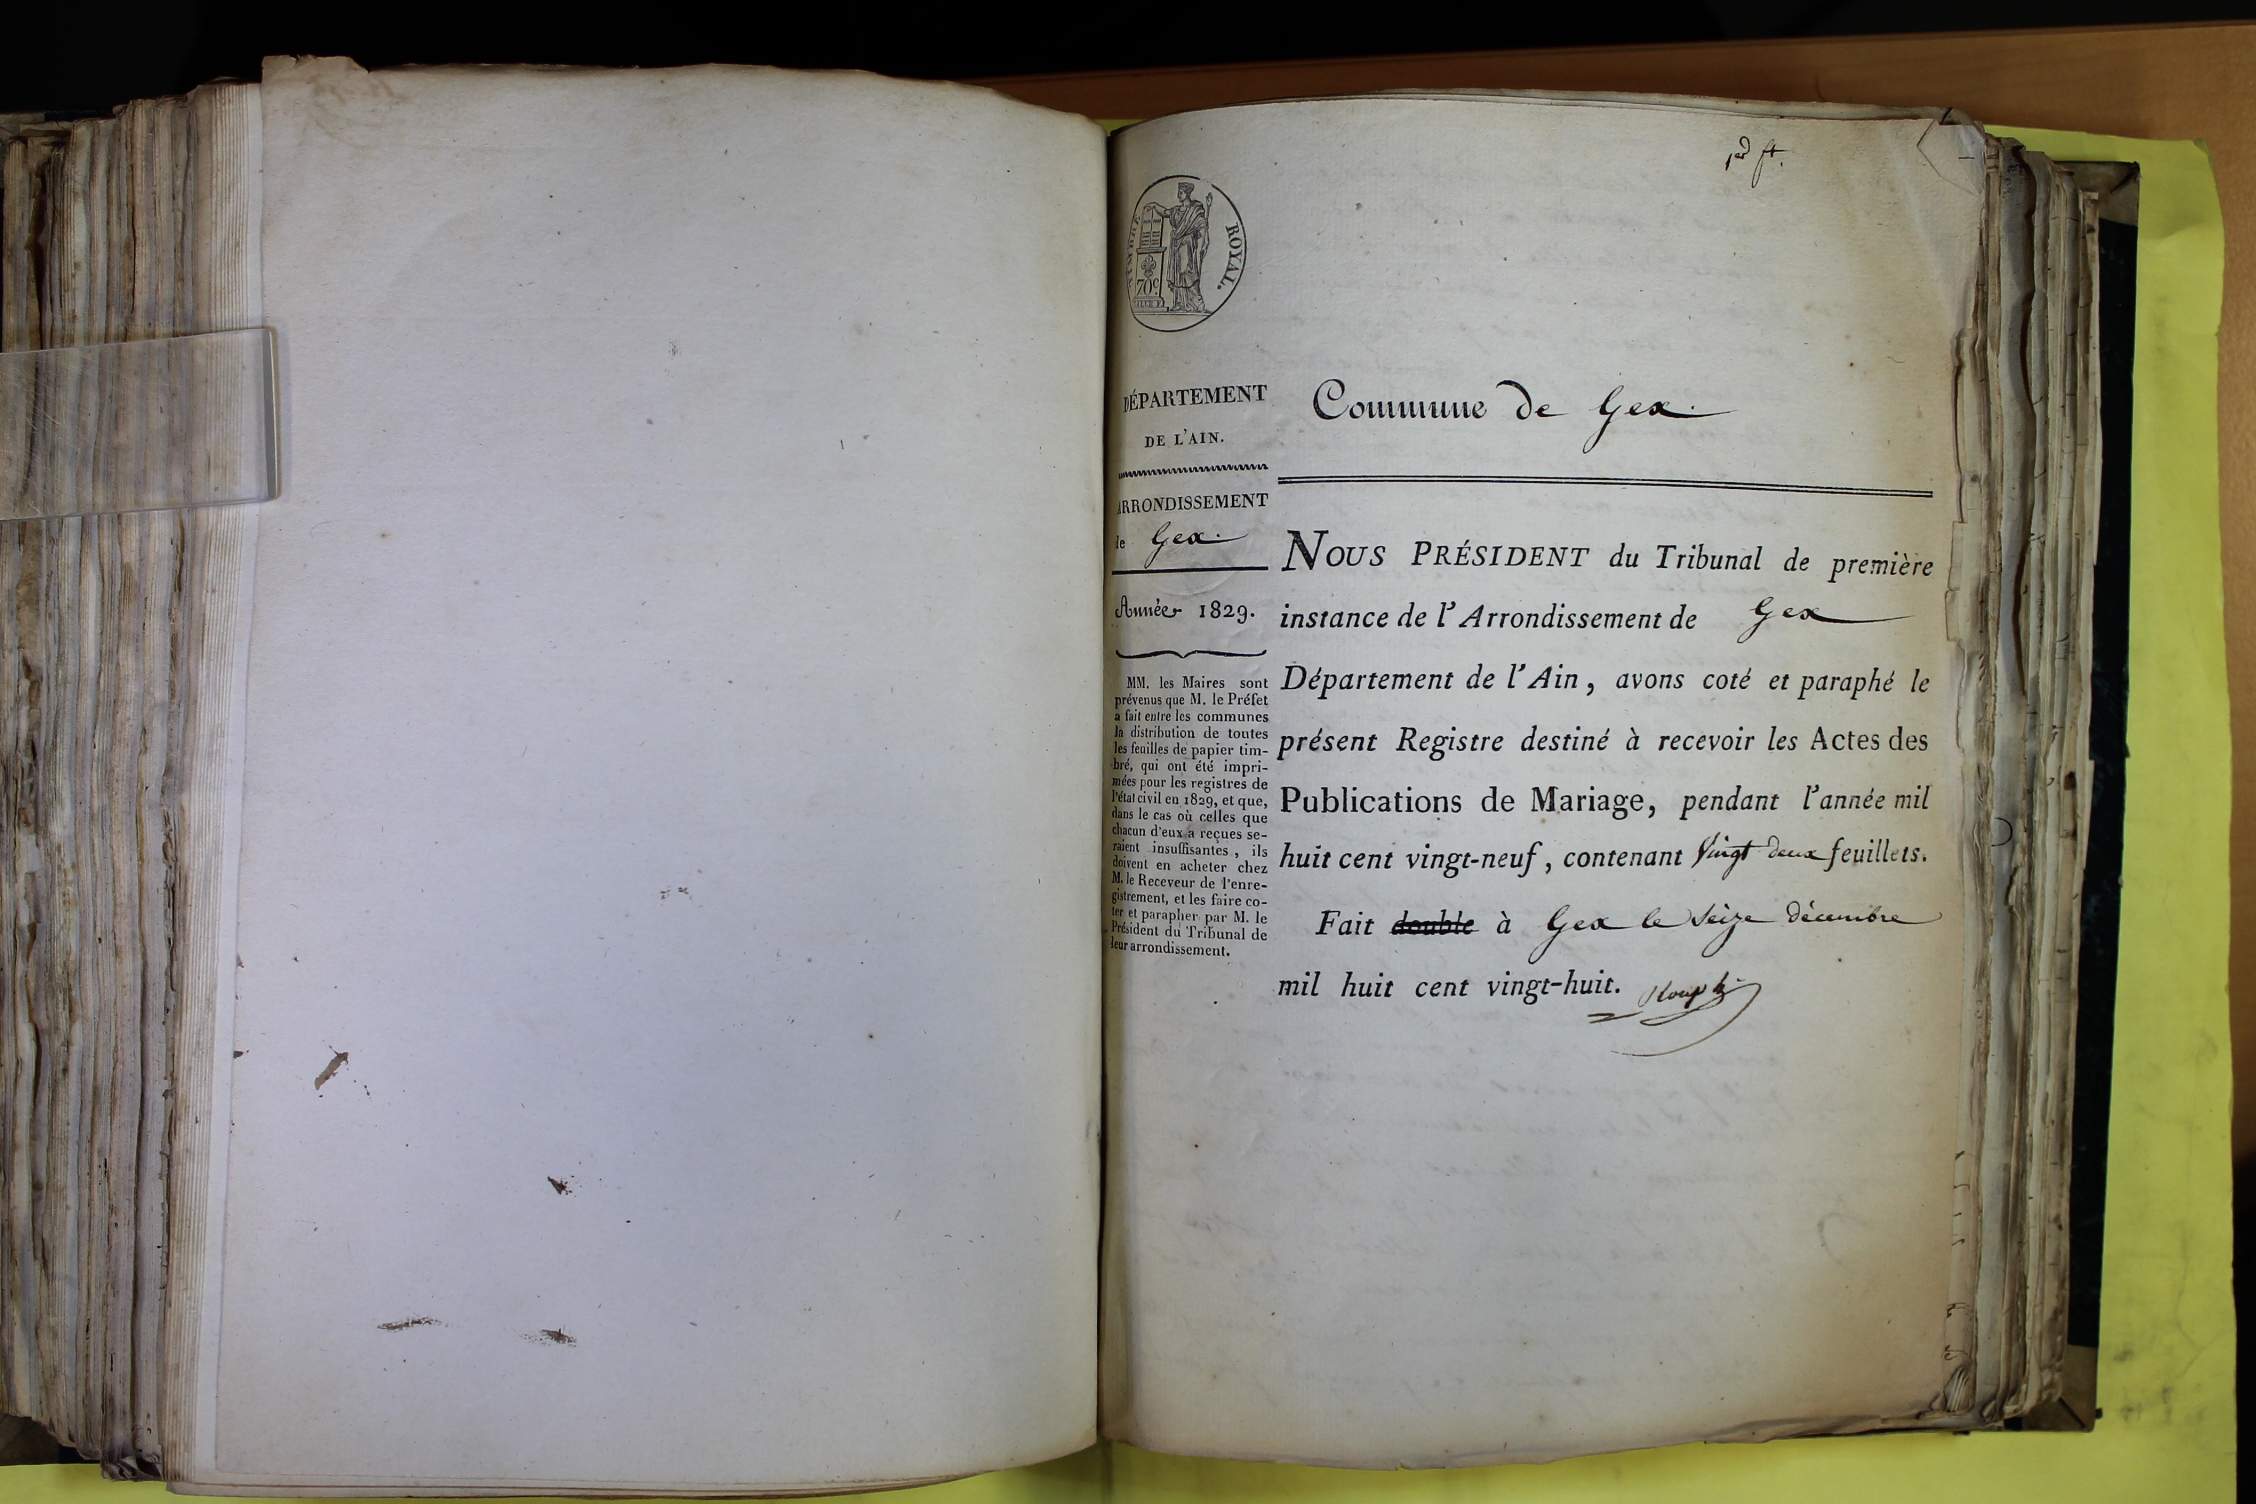 1er ft.
TIMBRE ROYAL.
70c
DÉPARTEMENT
DE L'AIN.
ARRONDISSEMENT
de Gex.
Année 1829.
MM. les Maires sont
prévenus que M. le Préfet
a fait entre les communes
la distribution de toutes
les feuilles de papier tim-
bré, qui ont été impri-
mées pour les registres de
l'état civil en 1829, et que,
dans le cas où celles que
chacun d'eux a reçues se-
raient insuffisantes, ils
doivent en acheter chez
M. le Receveur de l'enre-
gistrement, et les faire co-
ter et parapher par M. le
Président du Tribunal de
leur arrondissement.
Commune de Gex.
NOUS PRÉSIDENT du Tribunal de première
instance de l'Arrondissement de Gex
Département de l'Ain, avons coté et paraphé le
présent Registre destiné à recevoir les Actes des
Publications de Mariage, pendant l'année mil
huit cent vingt-neuf, contenant Vingt deux feuillets.
Fait double à Gex le Seize décembre
mil huit cent vingt-huit.